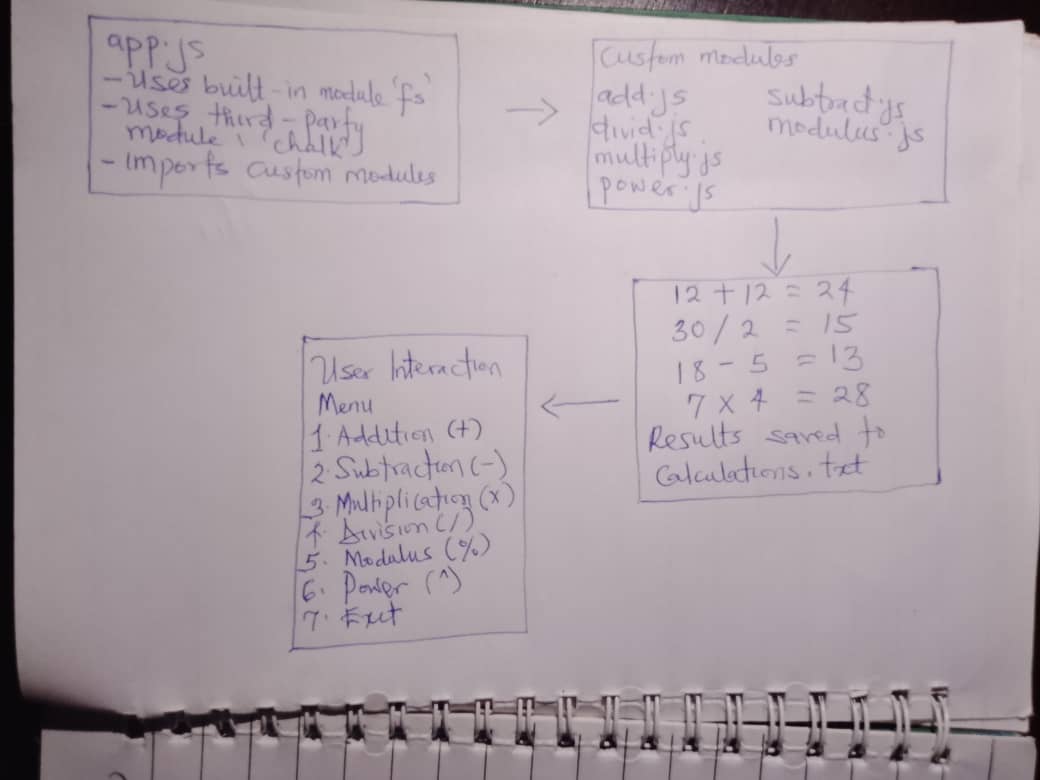 app.js
- Uses built-in module 'fs'
- Uses third-party
module 'chalk'
- Imports custom modules
Custom modules
add.js subtract.js
divid.js modulus.js
multiply.js
power.js
12 + 12 = 24
30 / 2 = 15
18 - 5 = 13
7 x 4 = 28
Results saved to
Calculations.txt
User Interaction
Menu
1. Addition (+)
2. Subtraction (-)
3. Multiplication (x)
4. Division (/)
5. Modulus (%)
6. Power (^)
7. Exit